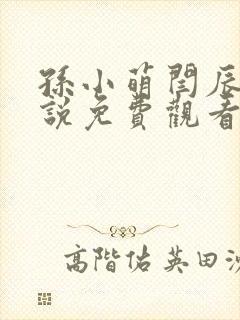 孫小萌閆辰
說免費觀看
高階佑英田